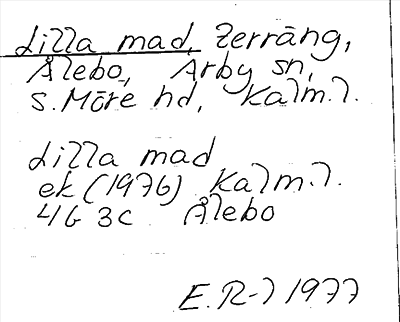 Lilla mad, terräng,
Ålebo, Arby sn,
S. Möre hd, Kalm.l.
Lilla mad
ek (1976) Kalm.l.
4G 3c Ålebo
E.R-l 1977